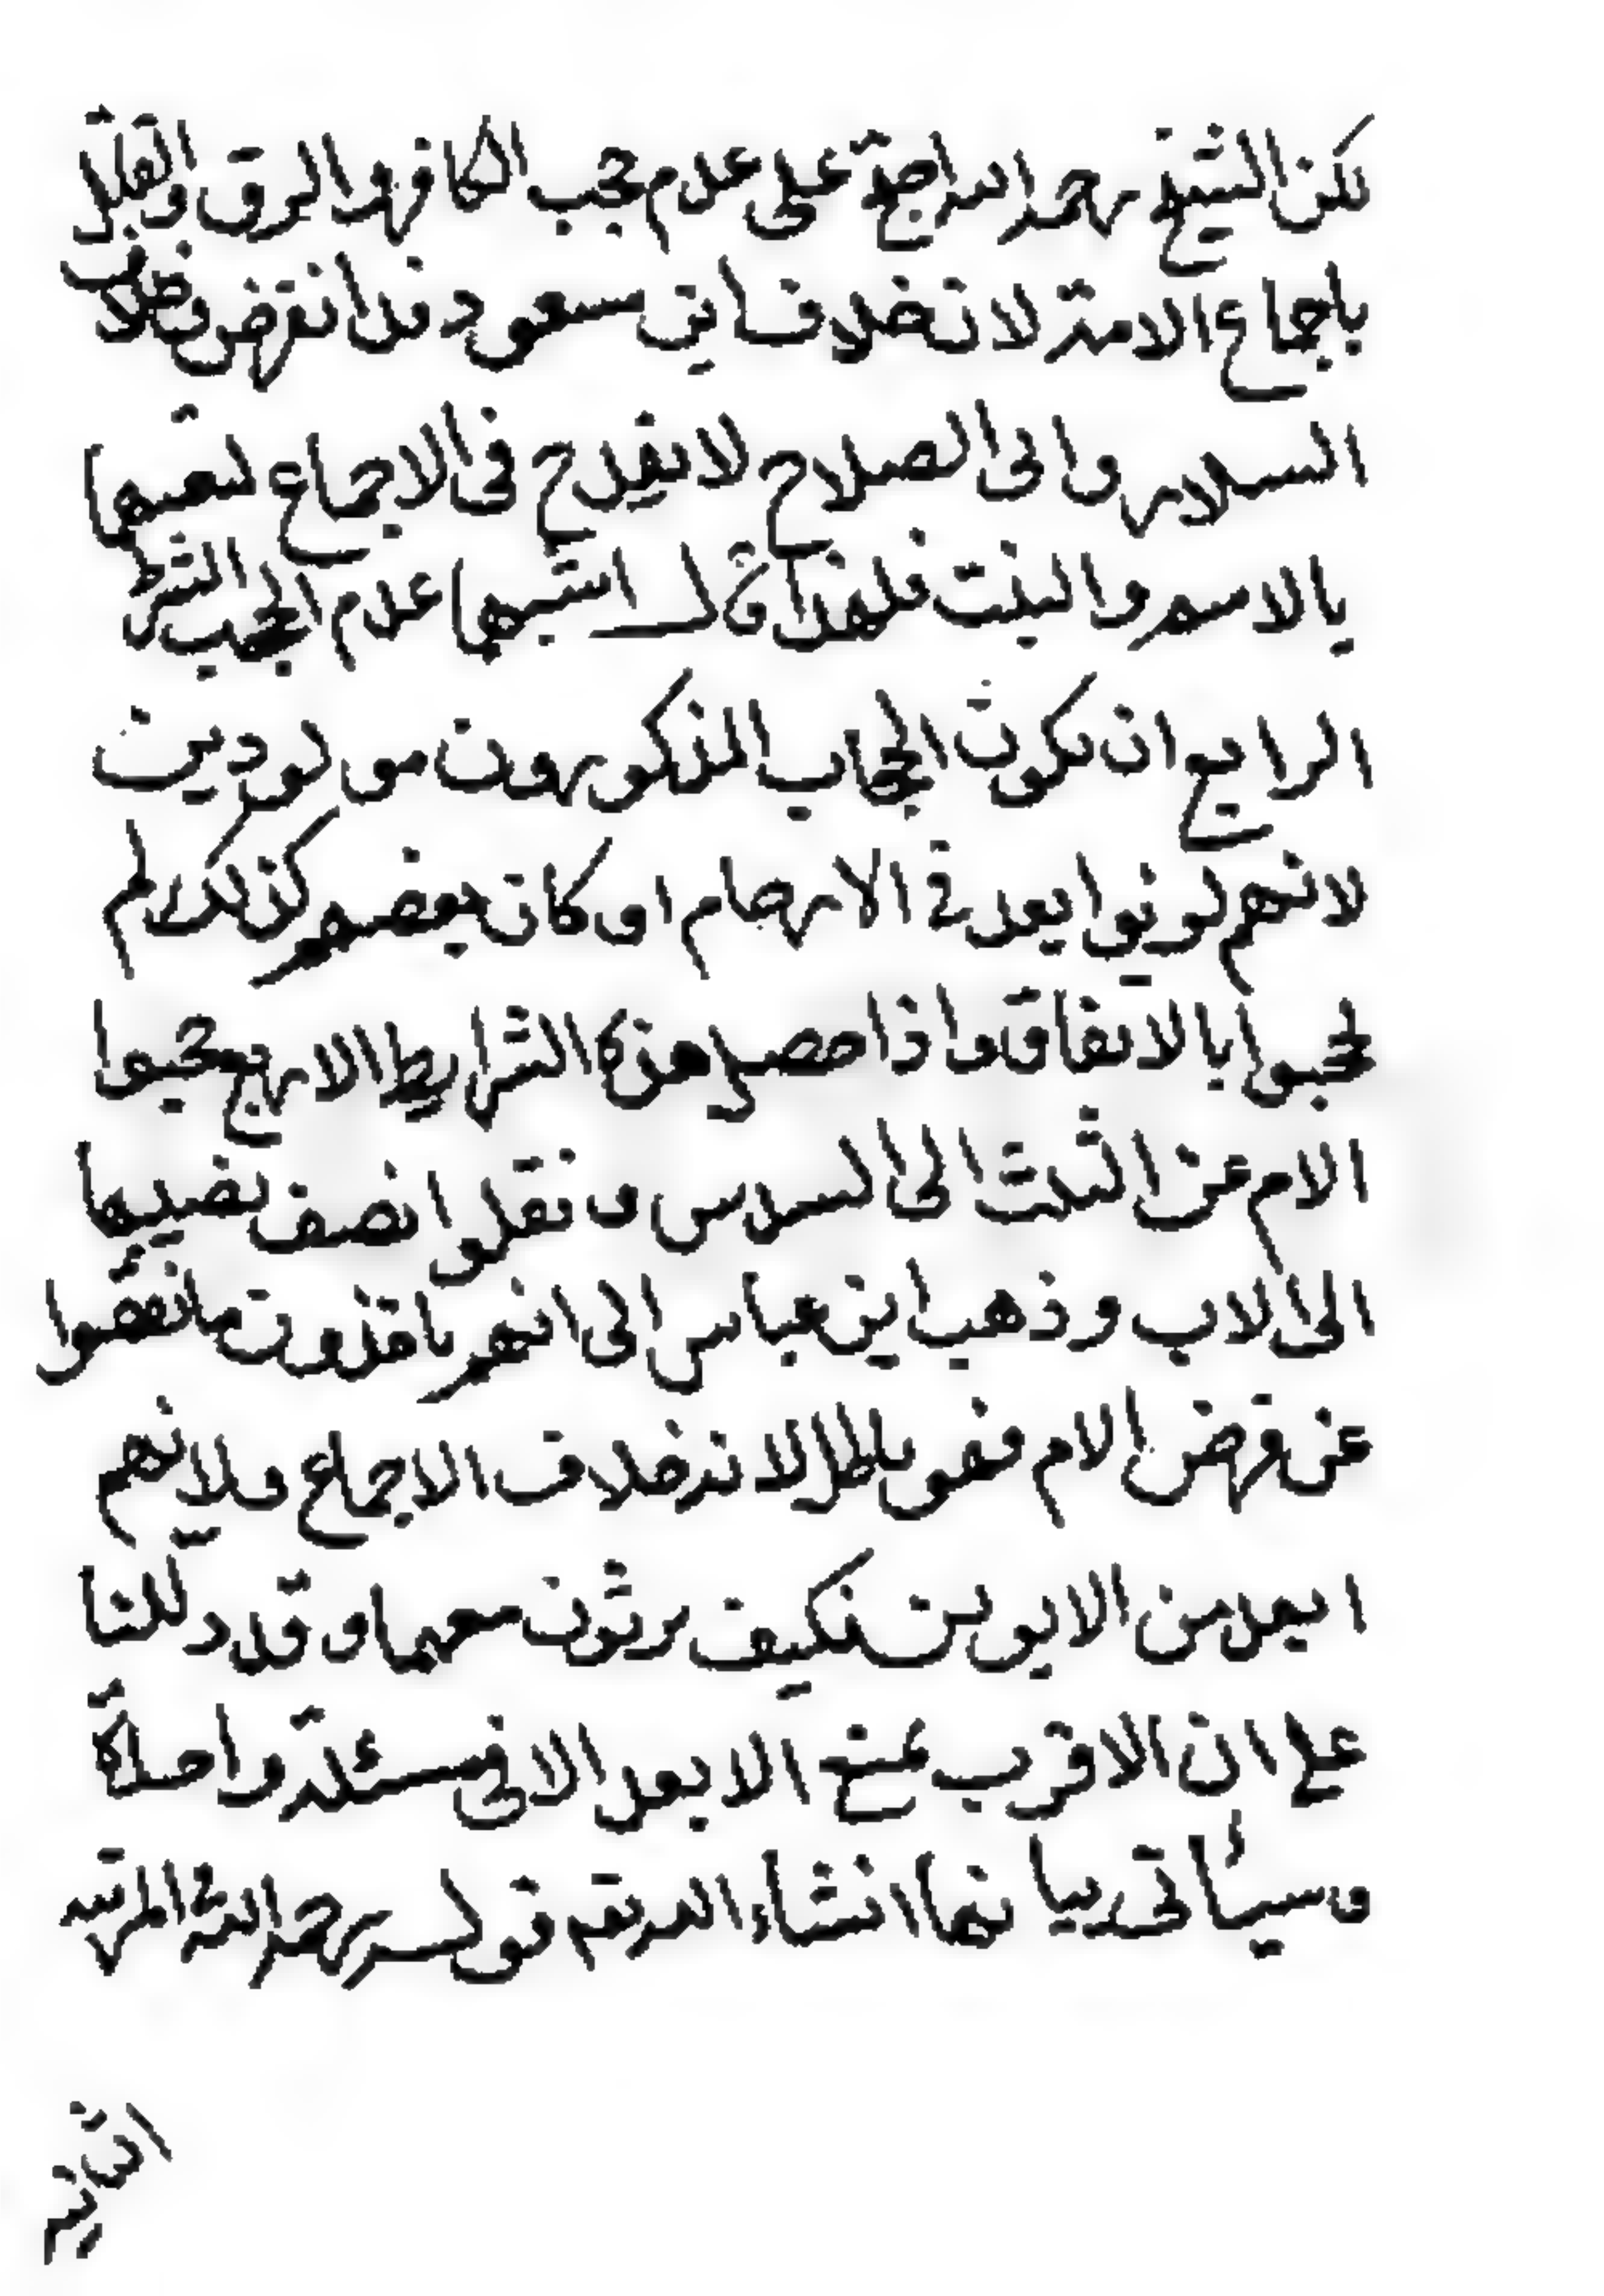 لكن الشيخ رحمه الله احتج على عدم حجب الكافر والرق والقتل
باجماع الامة لان خلاف ابن مسعود قد انقرض وخلاف
السلار وابى الصلاح لا يقدح فى الاجماع لتعينهما
بالاسم والبنت فلهذا قال اشبهما عدم الحجب الشرط
الرابع ان يكون الحجاب المذكورون مولودين
لانهم لو نوا بعد فى الارحام او كان بعضهم كذلك لم
يحجبوا بالاتفاق واذا حصل هذه الشرايط الاربع حجبوا
الام عن الثلث الى السدس ونقلوا نصف نصيبها
الى الاب وذهب ابن عباس الى انهم ياخذون ما نقصوا
عن فرض الام فهو باطل لانه خلاف الاجماع ولانهم
ابعد من الابوين فكيف يرثون معهما وقد دللنا
على ان الاقرب يمنع الابعد الا فى مسئلة واحدة
وسيأتى بيانها انشاء الله تعم قوله رحمه الله المرتبة
الثانية